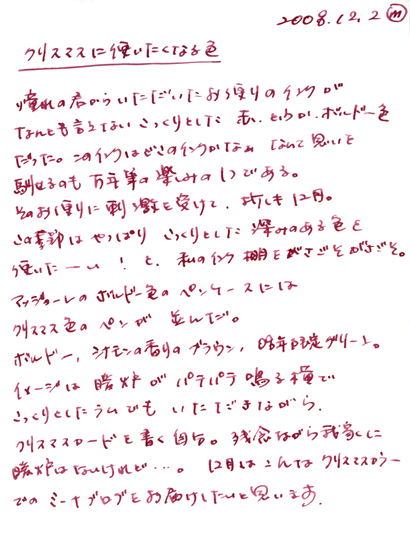 2008.12.2 m
クリスマスに使いたくなる色
憧れの君からいただいたお便りのインクが
なんとも言えない こっくりとした 赤、というか、ボルドー色
だった。このインクはどこのインクかなぁ なんて思いを
馳せるのも 万年筆の楽しみの1つである。
そのお便りに刺激を受けて、折しも12月。
この季節は やっぱり こっくりとした 深みのある色を
使いたーい！と、私のインク棚をがさごそがさごそ。
アッジョーレの ボルドー色の ペンケースには
クリスマス色の ペンが 並んだ。
ボルドー、シナモンの香りの ブラウン、08年限定グリーン。
イメージは 暖炉が パチパチ 鳴る横で
こっくりとした ラムでも いただきながら、
クリスマスカードを書く自分。残念ながら我家に
暖炉はないけれど…。12月は こんな クリスマスカラー
での ミーナブログを お届けしたいと思います。